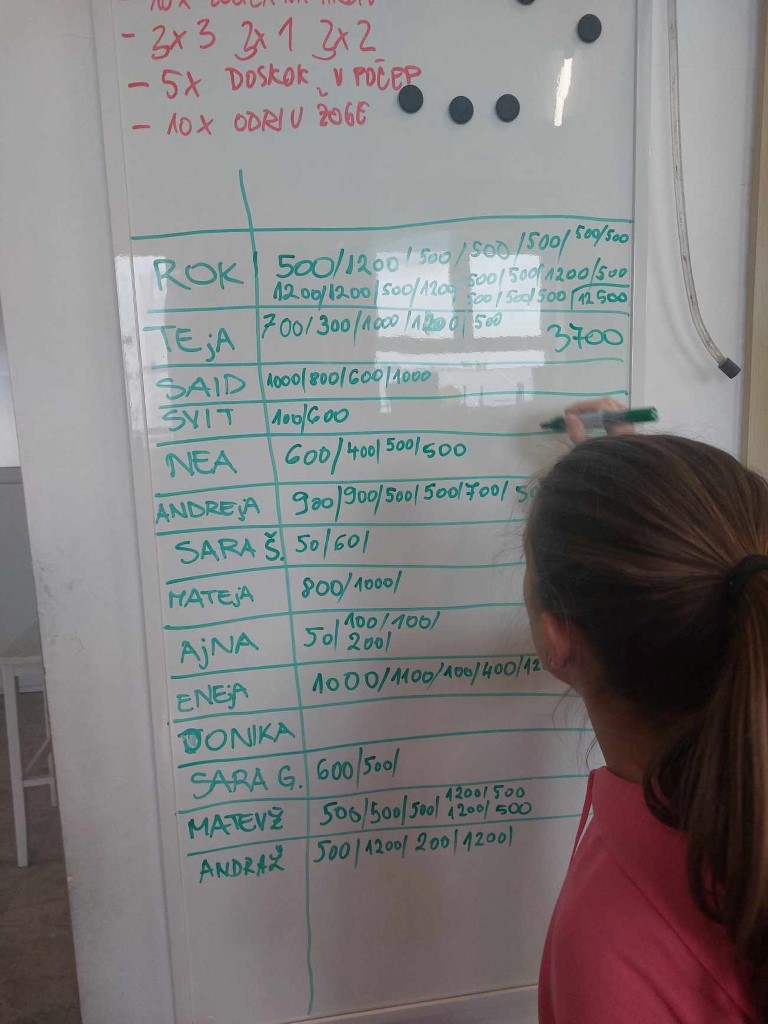 - 3x3 3x1 3x2
- 5x DOSKOK V POČEP
- 10x ODRIV ŽOGE
ROK 500/1200/500/500/500/500/500
1200/1200/500/1200 500/500/1200/500
500/500/500/12500
TEjA 700/300/1000/1200/500 3700
SAID 1000/800/600/1000
SVIT 100/600
NEA 600/400/500/500
ANDREjA 900/900/500/500/700/
SARA Š. 50/60/
MATEjA 800/1000/
AjNA 50/100/100/
200/
ENEjA 1000/1100/100/400/12
DONIKA
SARA G. 600/500/
MATEVŽ 500/500/500/1200/500
1200/500
ANDRAŽ 500/1200/200/1200/